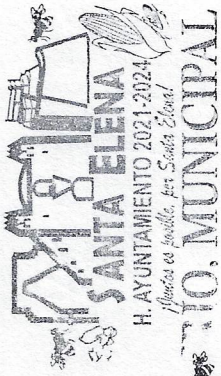 SANTA ELENA
H. AYUNTAMIENTO 2021-2024
¡Juntos es posible, por Santa Elena!
IO. MUNICIPAL